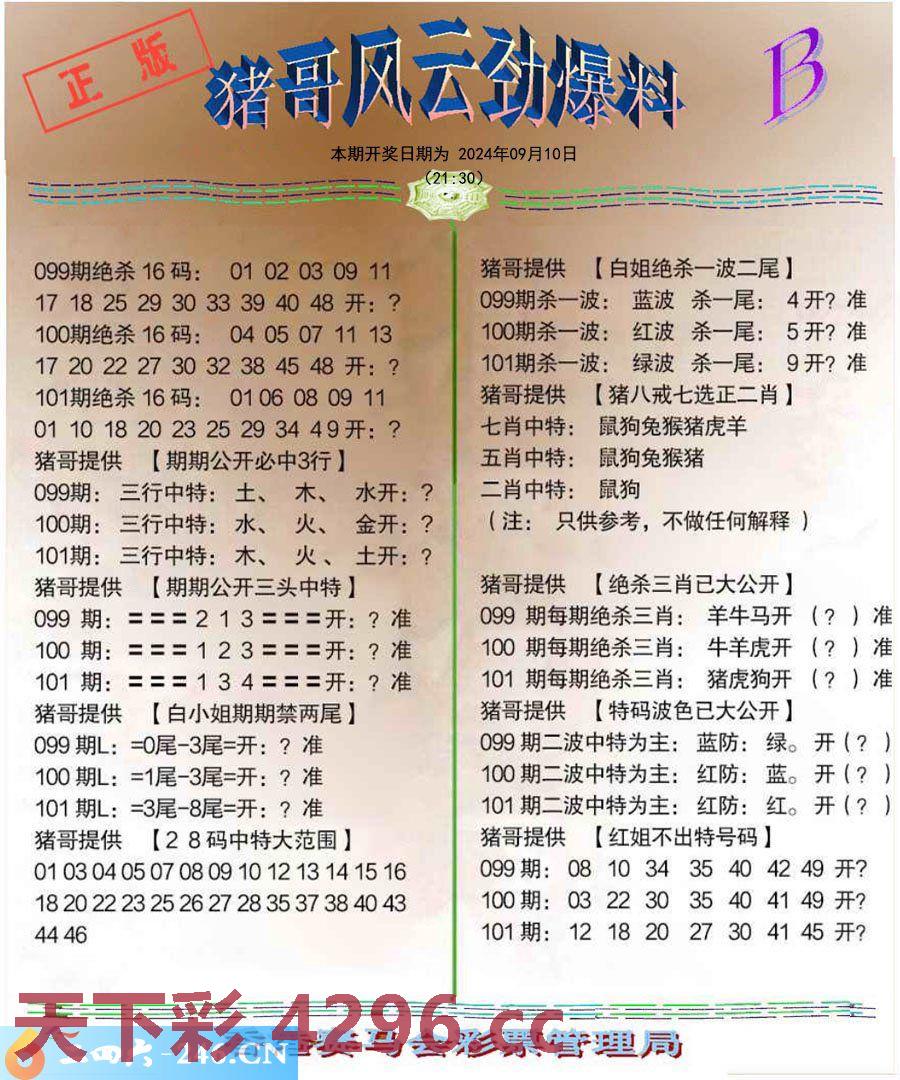 正版
猪哥风云劲爆料
B
本期开奖日期为 2024年09月10日
(21:30)
099期绝杀16码： 01 02 03 09 11
17 18 25 29 30 33 39 40 48 开：?
100期绝杀16码： 04 05 07 11 13
17 20 22 27 30 32 38 45 48 开：?
101期绝杀16码： 01 06 08 09 11
01 10 18 20 23 25 29 34 49 开：?
猪哥提供 【期期公开必中3行】
099期： 三行中特： 土、 木、 水开：?
100期： 三行中特： 水、 火、 金开：?
101期： 三行中特： 木、 火、 土开：?
猪哥提供 【期期公开三头中特】
099 期：＝＝＝2 1 3＝＝＝开：? 准
100 期：＝＝＝1 2 3＝＝＝开：? 准
101 期：＝＝＝1 3 4＝＝＝开：? 准
猪哥提供 【白小姐期期禁两尾】
099期L：=0尾-3尾=开：? 准
100期L：=1尾-3尾=开：? 准
101期L：=3尾-8尾=开：? 准
猪哥提供 【28码中特大范围】
01 03 04 05 07 08 09 10 12 13 14 15 16
18 20 22 23 25 26 27 28 35 37 38 40 43
44 46
猪哥提供 【白姐绝杀一波二尾】
099期杀一波： 蓝波 杀一尾： 4开? 准
100期杀一波： 红波 杀一尾： 5开? 准
101期杀一波： 绿波 杀一尾： 9开? 准
猪哥提供 【猪八戒七选正二肖】
七肖中特： 鼠狗兔猴猪虎羊
五肖中特： 鼠狗兔猴猪
二肖中特： 鼠狗
（注： 只供参考，不做任何解释）
猪哥提供 【绝杀三肖已大公开】
099 期每期绝杀三肖： 羊牛马开 （?）准
100 期每期绝杀三肖： 牛羊虎开 （?）准
101 期每期绝杀三肖： 猪虎狗开 （?）准
猪哥提供 【特码波色已大公开】
099期二波中特为主：蓝防：绿。开（?）
100期二波中特为主：红防：蓝。开（?）
101期二波中特为主：红防：红。开（?）
猪哥提供 【红姐不出特号码】
099期： 08 10 34 35 40 42 49 开?
100期： 03 22 30 35 40 41 49 开?
101期： 12 18 20 27 30 41 45 开?
天下彩 4296.cc
二四六-246.CN
马会彩票管理局